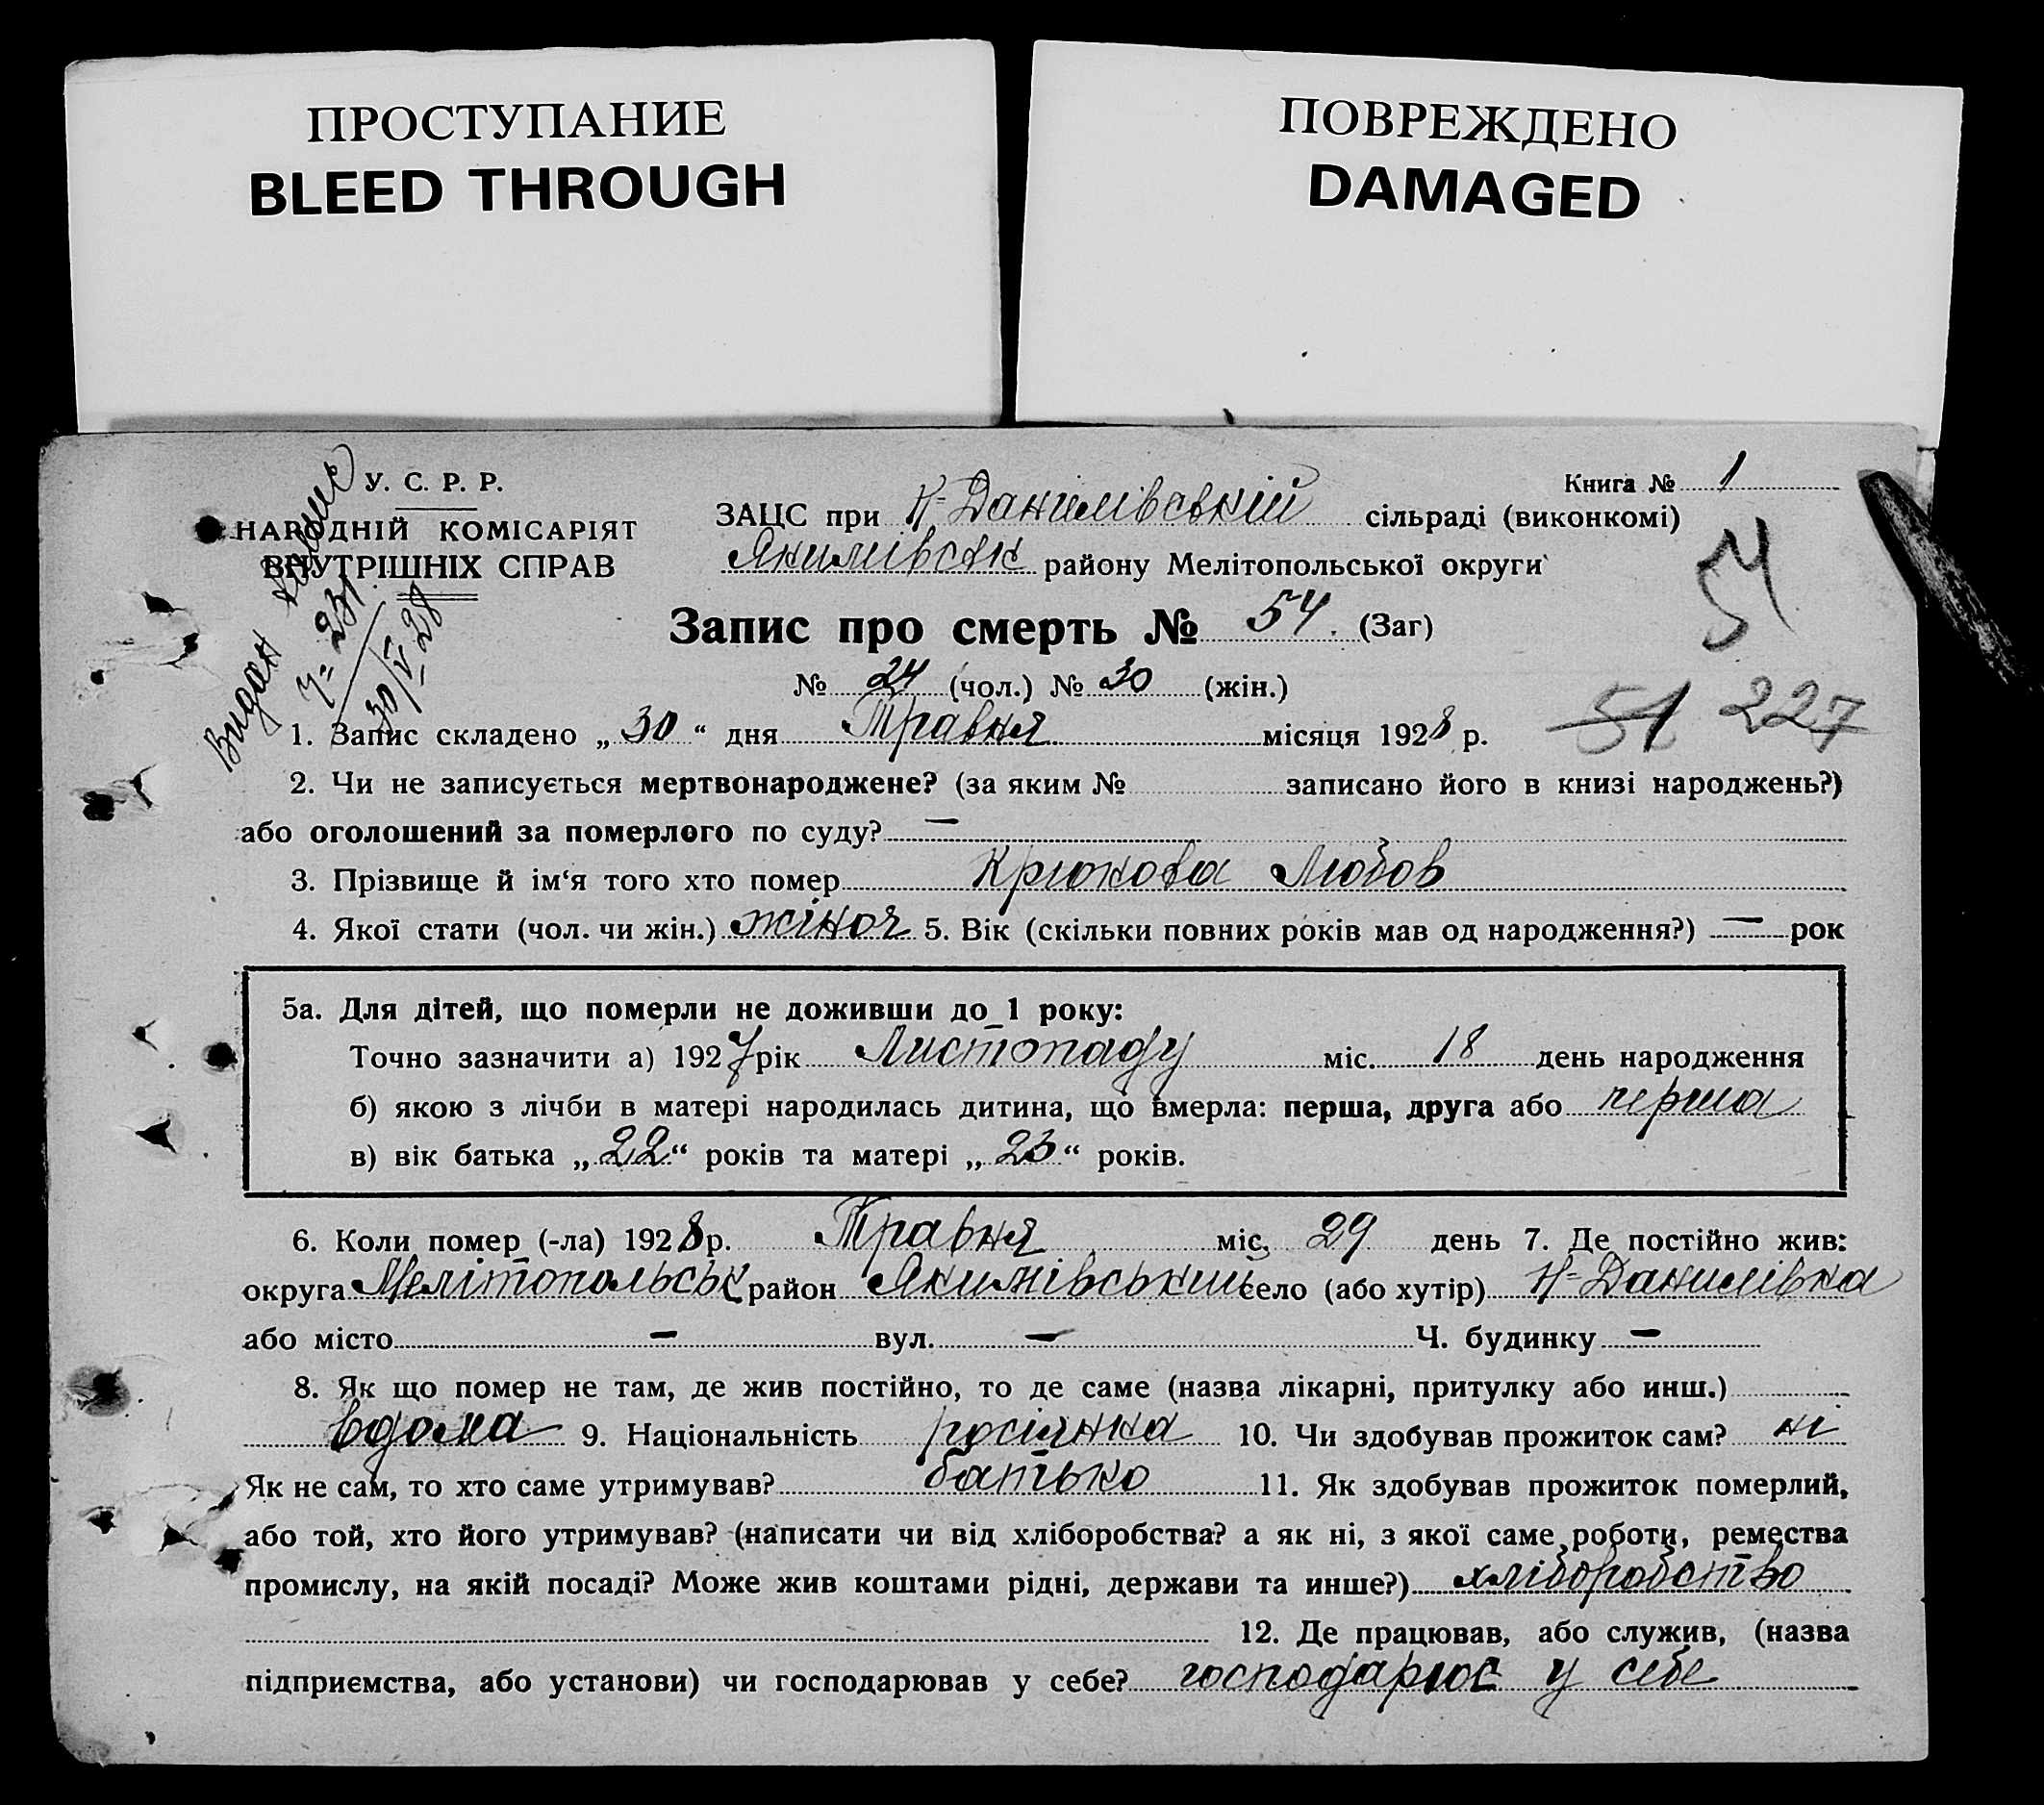 ПРОСТУПАНИЕ
BLEED THROUGH
ПОВРЕЖДЕНО
DAMAGED
У. С. Р. Р.
НАРОДНІЙ КОМІСАРІЯТ
ВНУТРІШНІХ СПРАВ
Видан
№ 231
30/V 28
Книга № 1
ЗАЦС при Н-Данилівській сільраді (виконкомі)
Якимівськ району Мелітопольської округи
54
Запис про смерть № 54. (Заг)
№ 24 (чол.) № 30 (жін.)
51 227
1. Запис складено „30“ дня Травня місяця 1928 р.
2. Чи не записується мертвонароджене? (за яким № записано його в книзі народжень?)
або оголошений за померлого по суду? —
3. Прізвище й ім‘я того хто помер Крюкова Любов
4. Якої стати (чол. чи жін.) жіноч 5. Вік (скільки повних років мав од народження?) — рок
5а. Для дітей, що померли не доживши до 1 року:
Точно зазначити а) 1927 рік Листопаду міс. 18 день народження
б) якою з лічби в матері народилась дитина, що вмерла: перша, друга або перша
в) вік батька „22“ років та матері „23“ років.
6. Коли помер (-ла) 1928 р. Травня міс. 29 день 7. Де постійно жив:
округа Мелітопольськ район Якимівський село (або хутір) Н-Данилівка
або місто — вул. — Ч. будинку —
8. Як що помер не там, де жив постійно, то де саме (назва лікарні, притулку або инш.)
вдома 9. Національність росіянка 10. Чи здобував прожиток сам? ні
Як не сам, то хто саме утримував? батько 11. Як здобував прожиток померлий,
або той, хто його утримував? (написати чи від хліборобства? а як ні, з якої саме роботи, ремества
промислу, на якій посаді? Може жив коштами рідні, держави та инше?) хліборобство
12. Де працював, або служив, (назва
підприємства, або установи) чи господарював у себе? господарює у себе